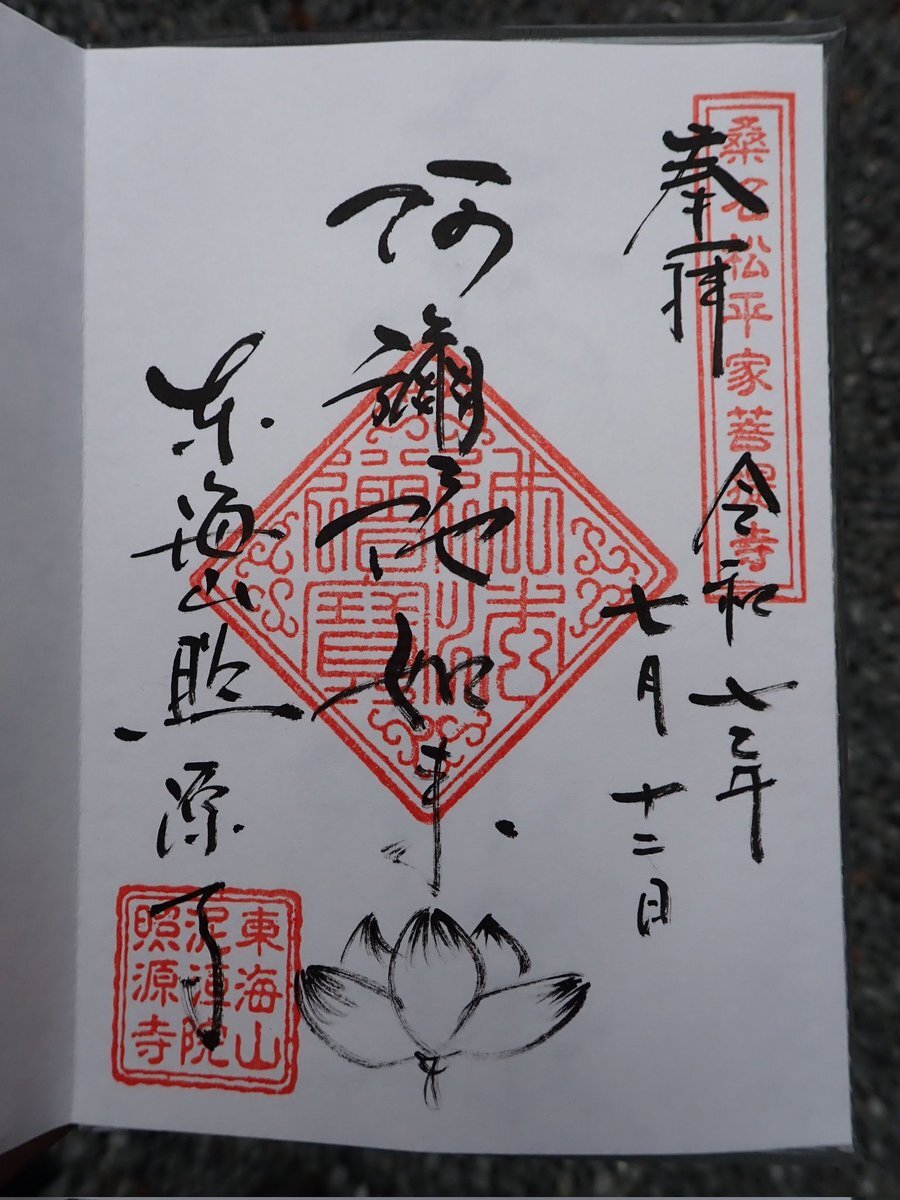 桑名松平家菩提寺
奉拝
令和七年
七月十二日
阿彌陀如来
佛法僧寶
东海山照源寺
東海山
泥洹院
照源寺